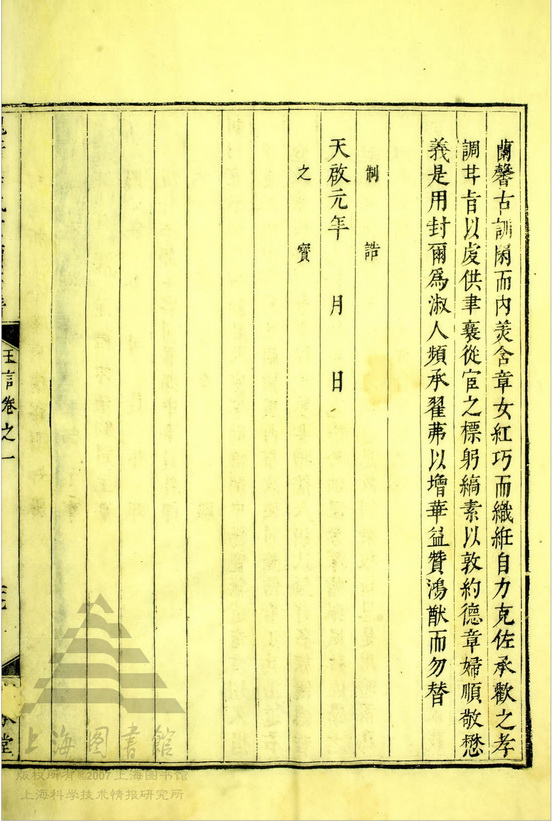 蘭馨古訓閑而内美含章女紅巧而織紝自力克佐承歡之孝
調甘旨以虔供聿襄從宦之標躬縞素以敦約德章婦順敬懋
義是用封爾為淑人頻承翟茀以增華益贊鴻猷而勿替
制誥
天啟元年 月 日
之寶
王言卷之一
堂
上海图书馆
版权所有©2007上海图书馆
上海科学技术情报研究所